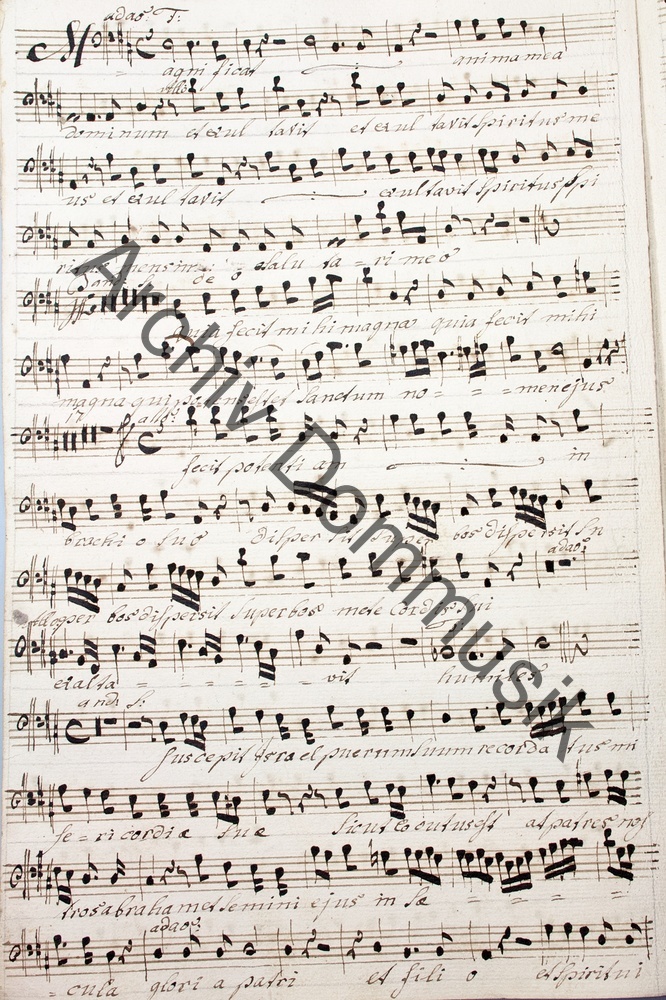 adag: T:
M
agnificat anima mea
allo
dominum et exul tavit et exul tavit spiritus me
us et exul tavit exultavit spiritus spi
de o salu ta = ri meo
quia fecit mihi magna quia fecit mihi
magna qui potens est et sanctum no = = = men ejus
17 allo:
fecit potenti am in
brachi o suo super bos dispersit su
adag:
per bos dispersit superbos mente cordis sui
exalta = = = = = = = vit humiles
and: S:
suscepit Israel puerum suum recorda tus mi
se = ricordiæ suæ sicut locutus est at patres nos
tros abraham et semini ejus in sæ = = = = =
adag:
= cula glori a patri et fili o et spiritui
Archiv Dommusik